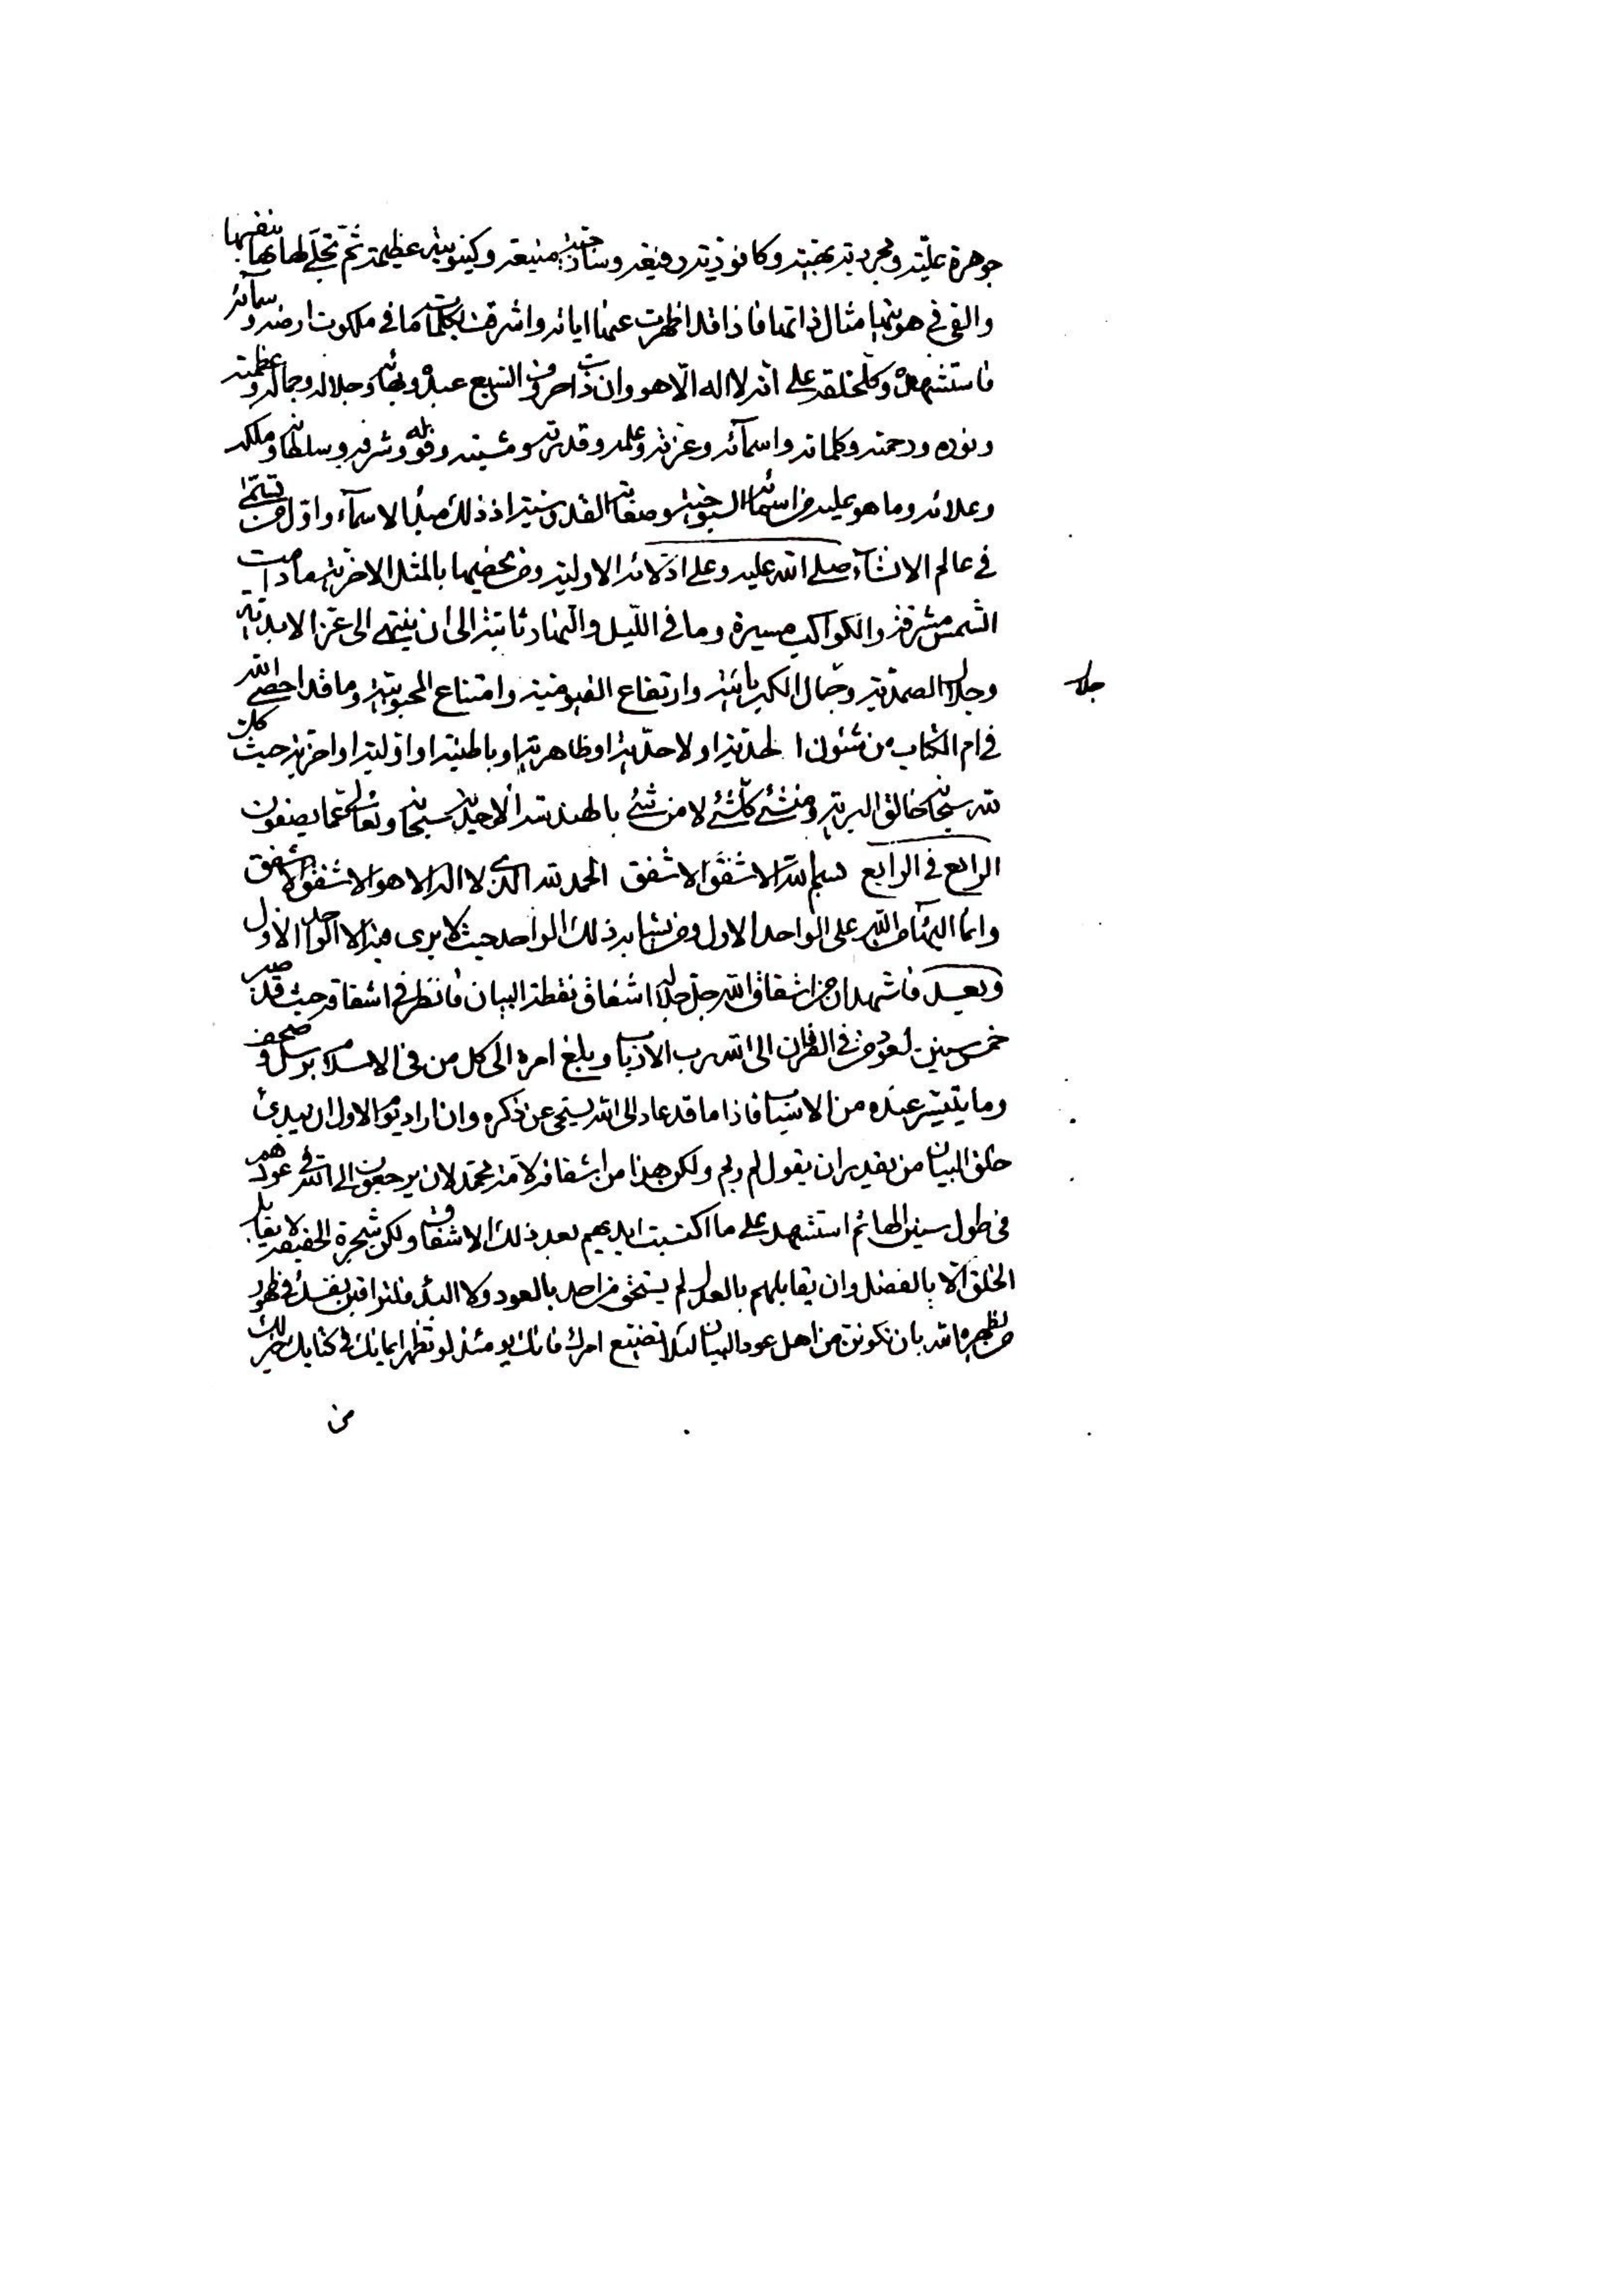 جوهرة علية ومجردية بهية وكافورية رفيعة وساذجية منيعة وكينونية عظيمة ثم تجلى لها بها بنفسها
والقى في هويتها مثال ذاتها فاذا قد اظهرت عنها اياته واشرقت بكلمات ما في ملكوت ارضه وسمآئه
فاستشهده وكلخلقه على انه لا اله الا هو وان ذات حروف السبع عبده وبهائه وجلاله وجماله وعظمته
ونوره ورحمته وكلماته واسمآئه وعزته وعلمه وقدرته ومشيته وقوله وشرفه وسلطانه وملكه
وعلائه وما هو عليه من اسمائه السبوحية وصفاته القدوسية اذ ذلك مبدأ الاسمآء واول من تسمى
في عالم الانشآء صلى الله عليه وعلى ادلائه الاولية ومن يحضيها بالمثل الاخرية ما دامت
الشمس مشرقة والكواكب مسيرة وما في الليل والنهار ثابتة الى ان ينتهى الى عز الابدية
وجلال الصمدية وجمال الكبريائية وارتفاع القيومية وامتناع المحبوبية وما قد احصى الله
جلا
في ام الكتاب من شئون الحدية او لا حدية او ظاهرية او باطنية او اولية او اخرية حيث كل
لله سبحانه خالق البرية ومنشئ كلشئ لا من شئ بالهندسة الاحدية سبحانه وتعالى عما يصفون
الرابع في الرابع بسم الله الاشفق الاشفق الحمد لله الذى لا اله الا هو الاشفق الاشفق
وانما البهاء من الله على الواحد الاول ومن يشابه ذلك الواحد حيث لا يرى فيه الا الواحد الاول
وبعد فاشهد ان من اشفاق الله جل جلاله اشفاق نقطة البيان فانظر في اشفاقه حيث قد صبر
خمس سنين لعود من في الفرقان الى الله رب الارباب وبلغ امره الى كل من في الاسلام برسل وصحف
وما يتيسر عنده من الاسباب فاذا ما قد عاد الى الله يستحى عن ذكره وان اراد يوم الاول ان يبدئ
خلق البيان من يقدر ان يقول لم وبم ولكن هذا من اشفاقه لامة محمد لان يرجعون الى الله في عودهم
في طول سنين الها ثم استشهد على ما اكتسبت ايديهم بعد ذلك الاشفاق ولكن شجرة الحقيقة لا يقابل
الخلق الا بالفضل وان يقابلهم بالعدل لم يستحق من احد بالعود وكا البدء فلتراقبن نفسك في ظهور
من يظهره الله بان تكونن من اهل عود البيان لئلا تضيع امرك فانك يومئذ لو تظهر ايمانك في كتابك خير لك
من